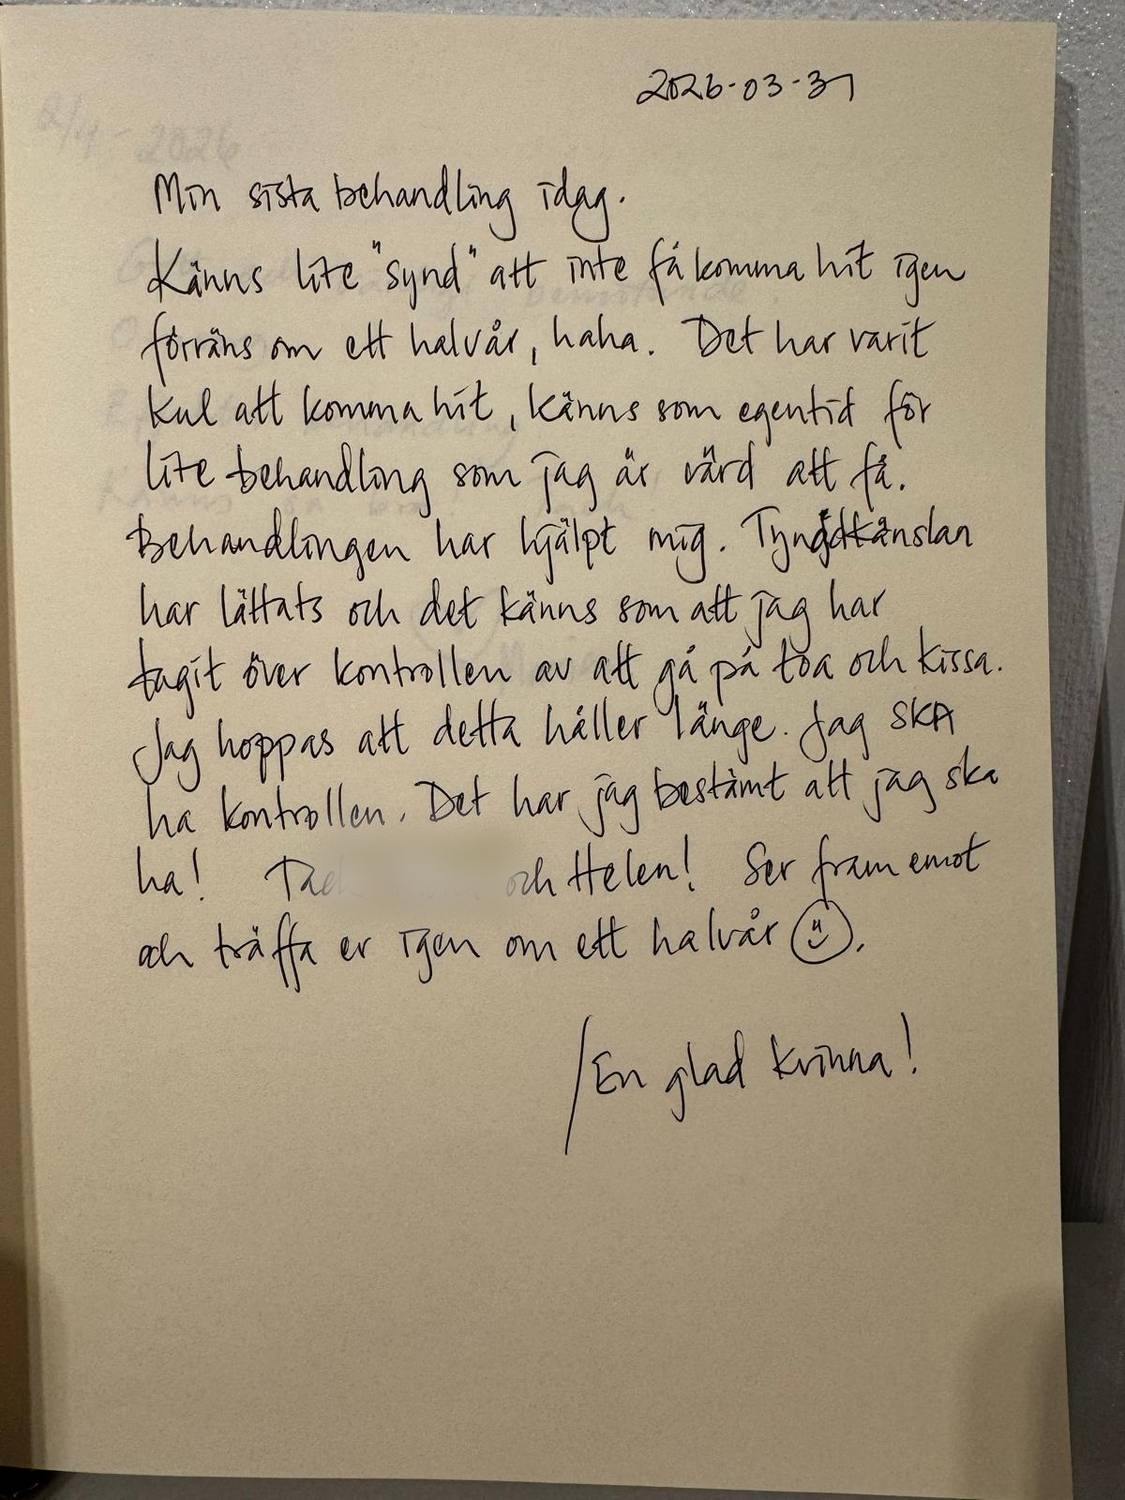 2026-03-31
Min sista behandling idag.
Känns lite "synd" att inte få komma hit igen
förräns om ett halvår, haha. Det har varit
kul att komma hit, känns som egentid för
lite behandling som jag är värd att få.
Behandlingen har hjälpt mig. Tyngdkänslan
har lättats och det känns som att jag har
tagit över kontrollen av att gå på toa och kissa.
Jag hoppas att detta håller länge. Jag SKA
ha kontrollen. Det har jag bestämt att jag ska
ha! och Helen! Ser fram emot
och träffa er igen om ett halvår
/En glad kvinna!
2/4-2026